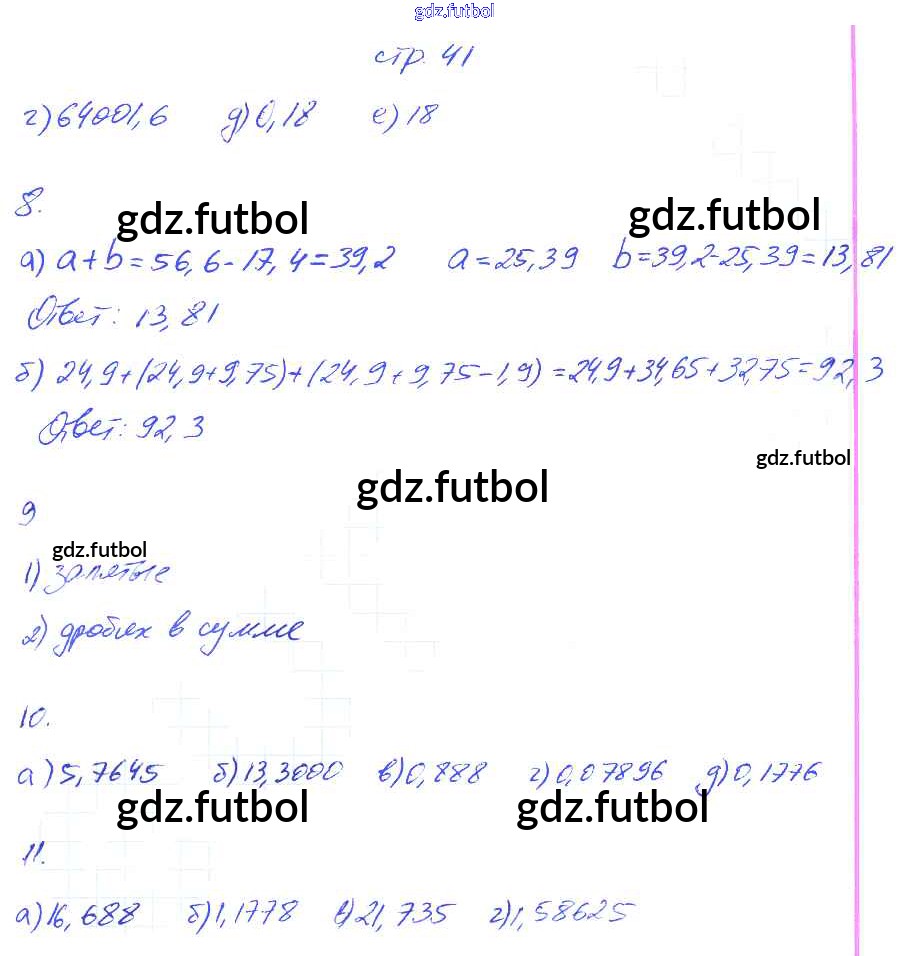 gdz.futbol
стр. 41
г) 64001,6 д) 0,18 е) 18
8.
gdz.futbol gdz.futbol
а) a+b=56,6-17,4=39,2 a=25,39 b=39,2-25,39=13,81
Ответ: 13,81
б) 24,9+(24,9+9,75)+(24,9+9,75-1,9)=24,9+34,65+32,75=92,3
Ответ: 92,3
gdz.futbol
gdz.futbol
9
gdz.futbol
1) запятые
2) дробях в сумме
10.
а) 5,7645 б) 13,3000 в) 0,888 г) 0,07896 д) 0,1776
gdz.futbol gdz.futbol
11.
а) 16,688 б) 1,1778 в) 21,735 г) 1,58625